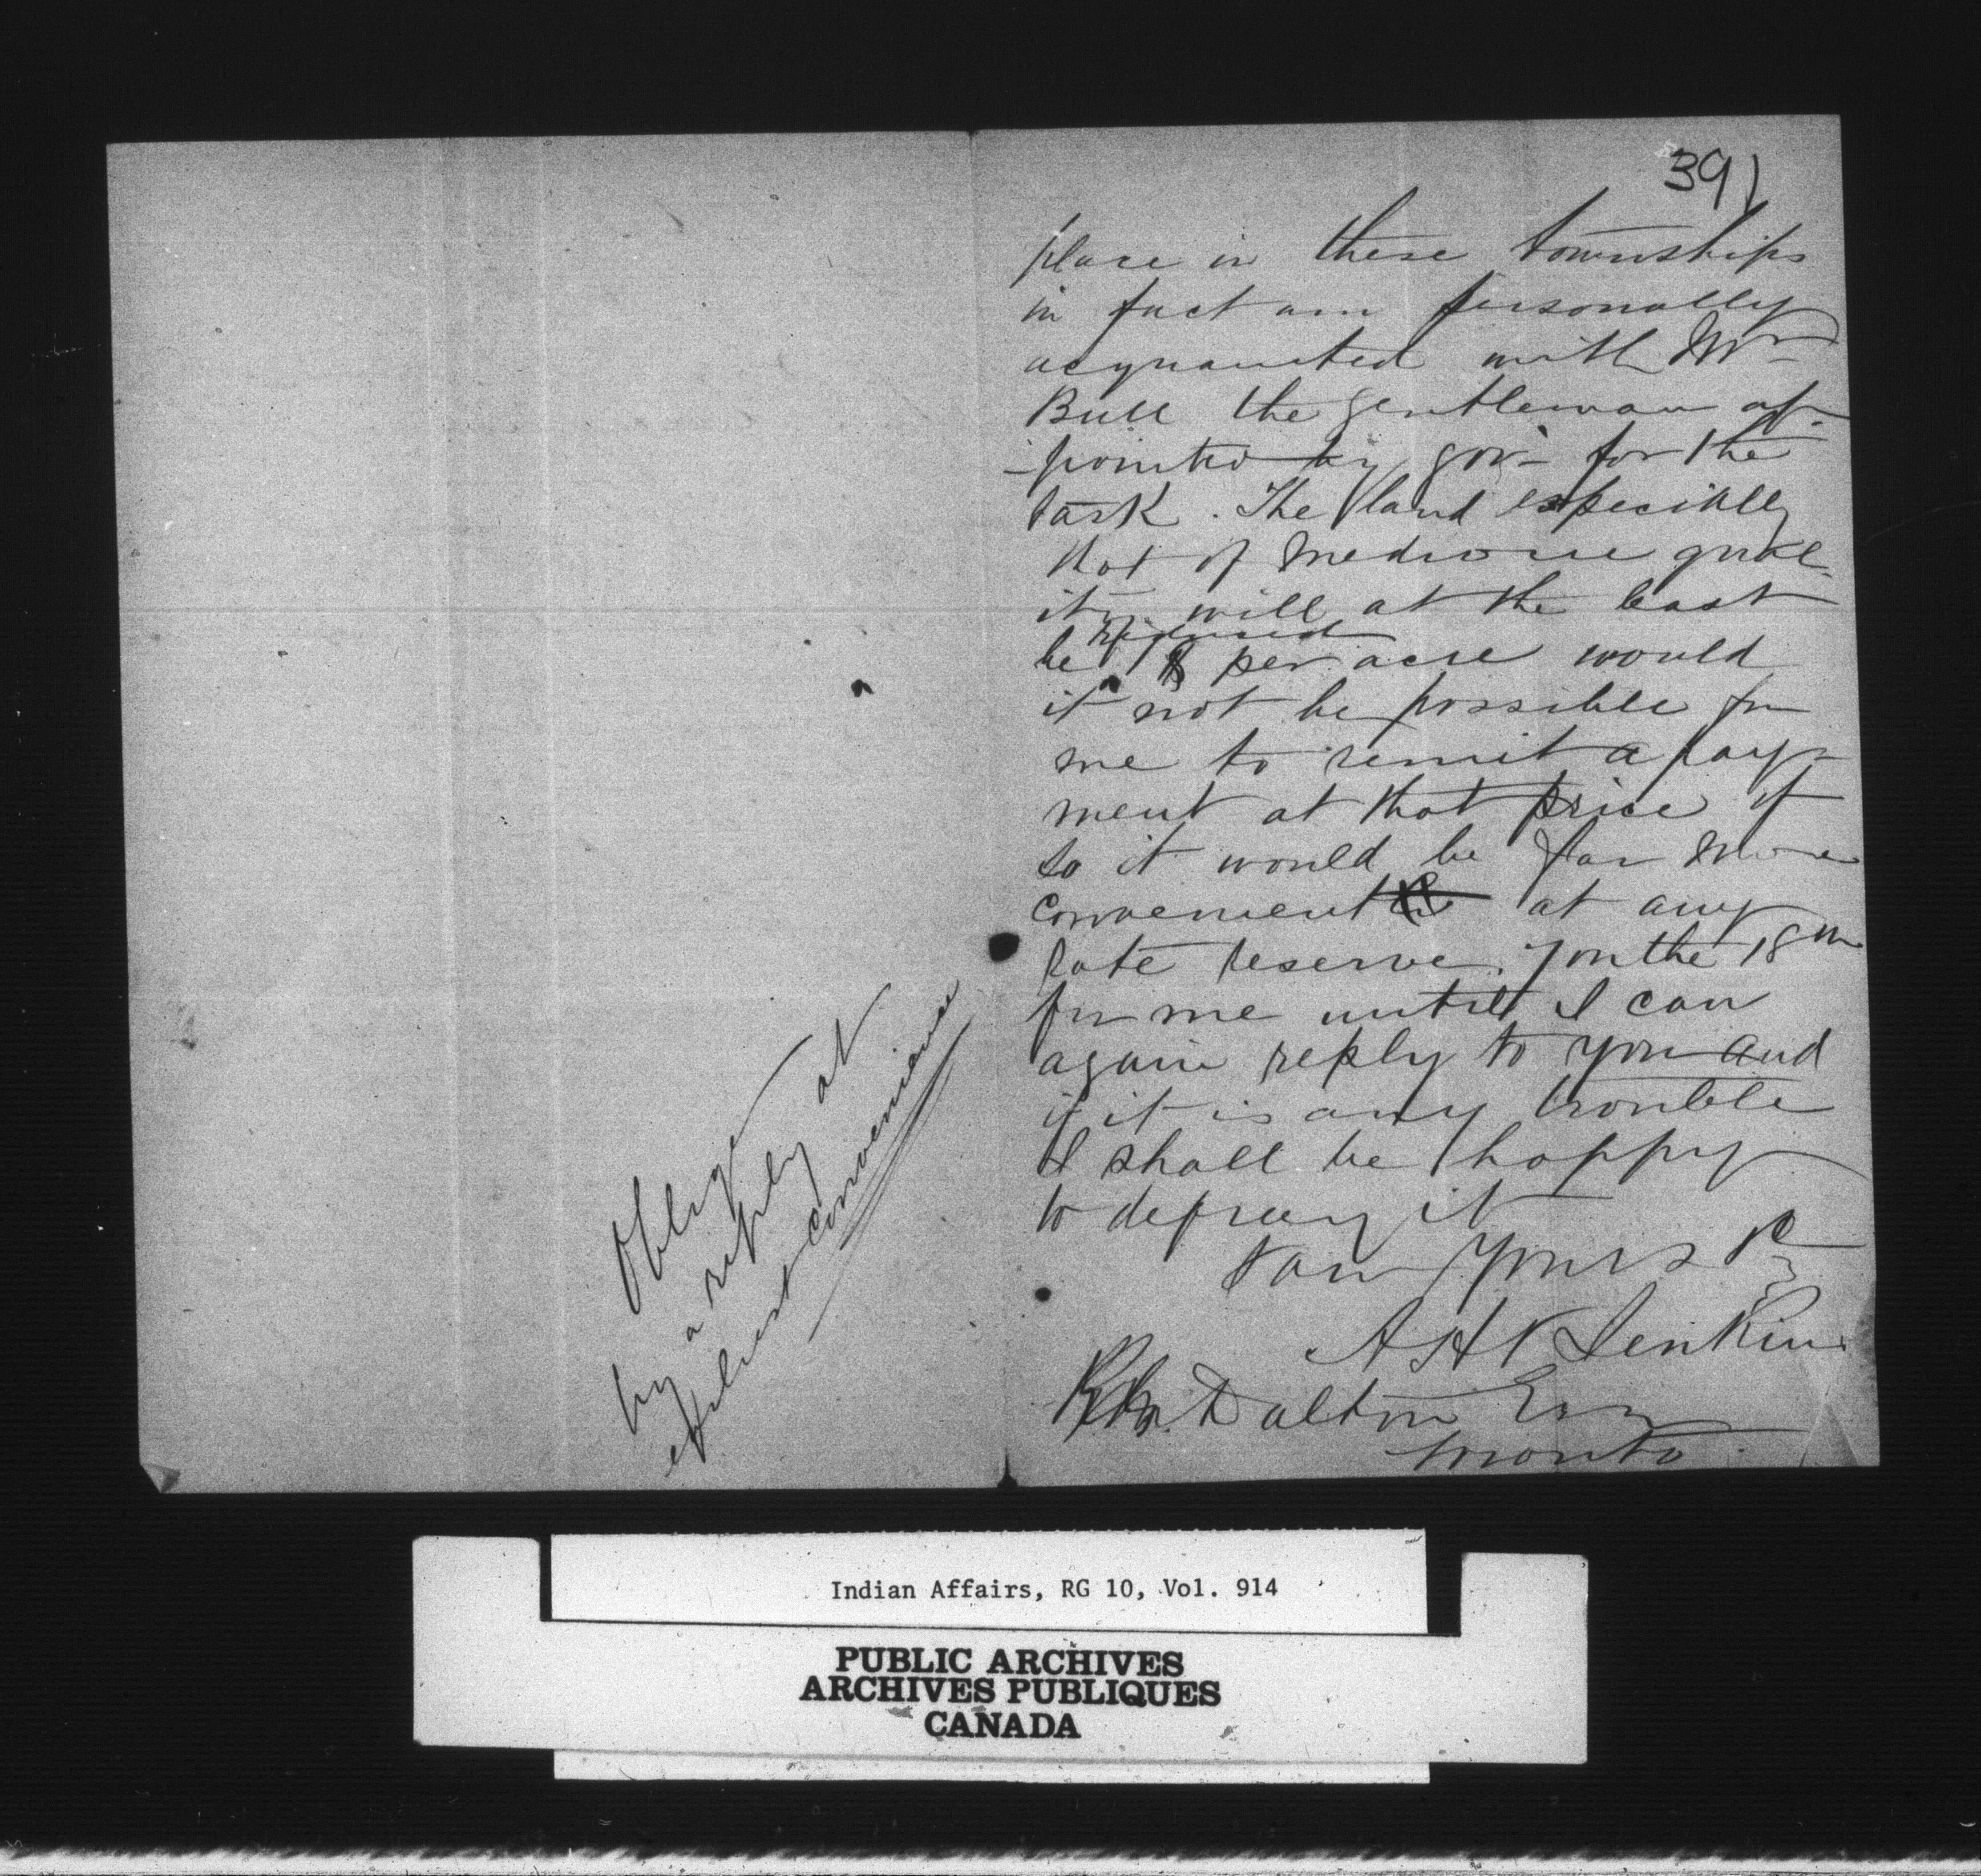 391
place in these townships
in fact am personally
acquainted with Mr
Bull the gentleman ap-
-pointed by gov- for the
task. The land especially
that of mediocre qual-
ity will at the least
be reduced 1$ per acre would
it not be possible for
me to remit a pay-
ment at that price if
so it would be far more
convenient at any
rate reserve for the 18th
for me until I can
again reply to you and
if it is any trouble
I shall be happy
to defray it
I am yours
A H Jenkins
Dalton Esq
Toronto
Oblige
by a reply at
earliest convenience
Indian Affairs, RG 10, Vol. 914
PUBLIC ARCHIVES
ARCHIVES PUBLIQUES
CANADA